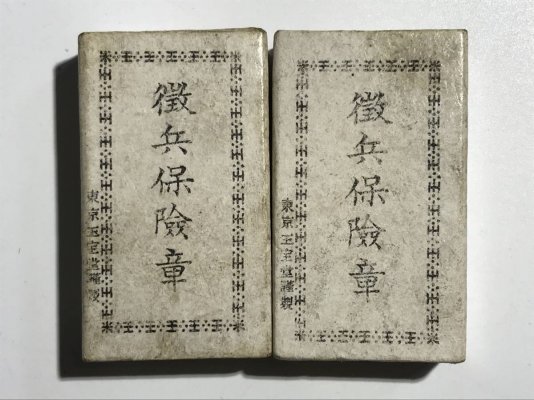 徵兵保險章
東京玉宝堂謹製
徵兵保險章
東京玉宝堂謹製